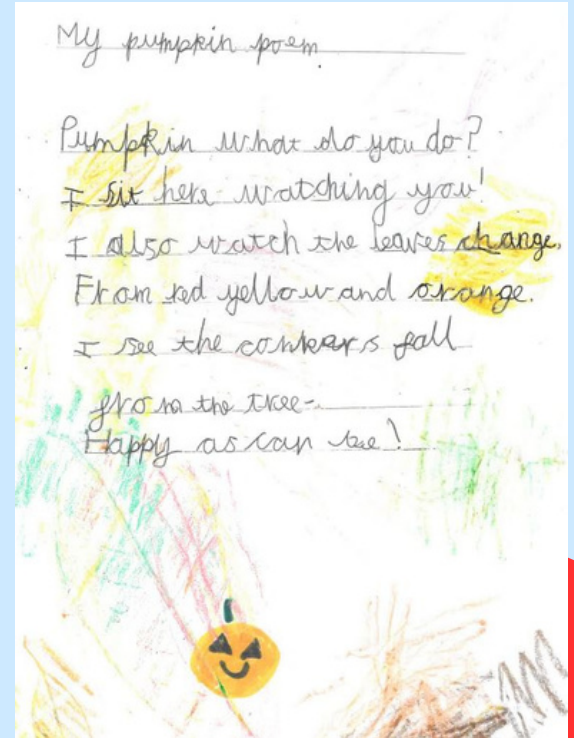 My pumpkin poem
Pumpkin what do you do?
I sit here watching you!
I also watch the leaves change,
From red yellow and orange.
I see the conkers fall
from the tree-
Happy as can be!